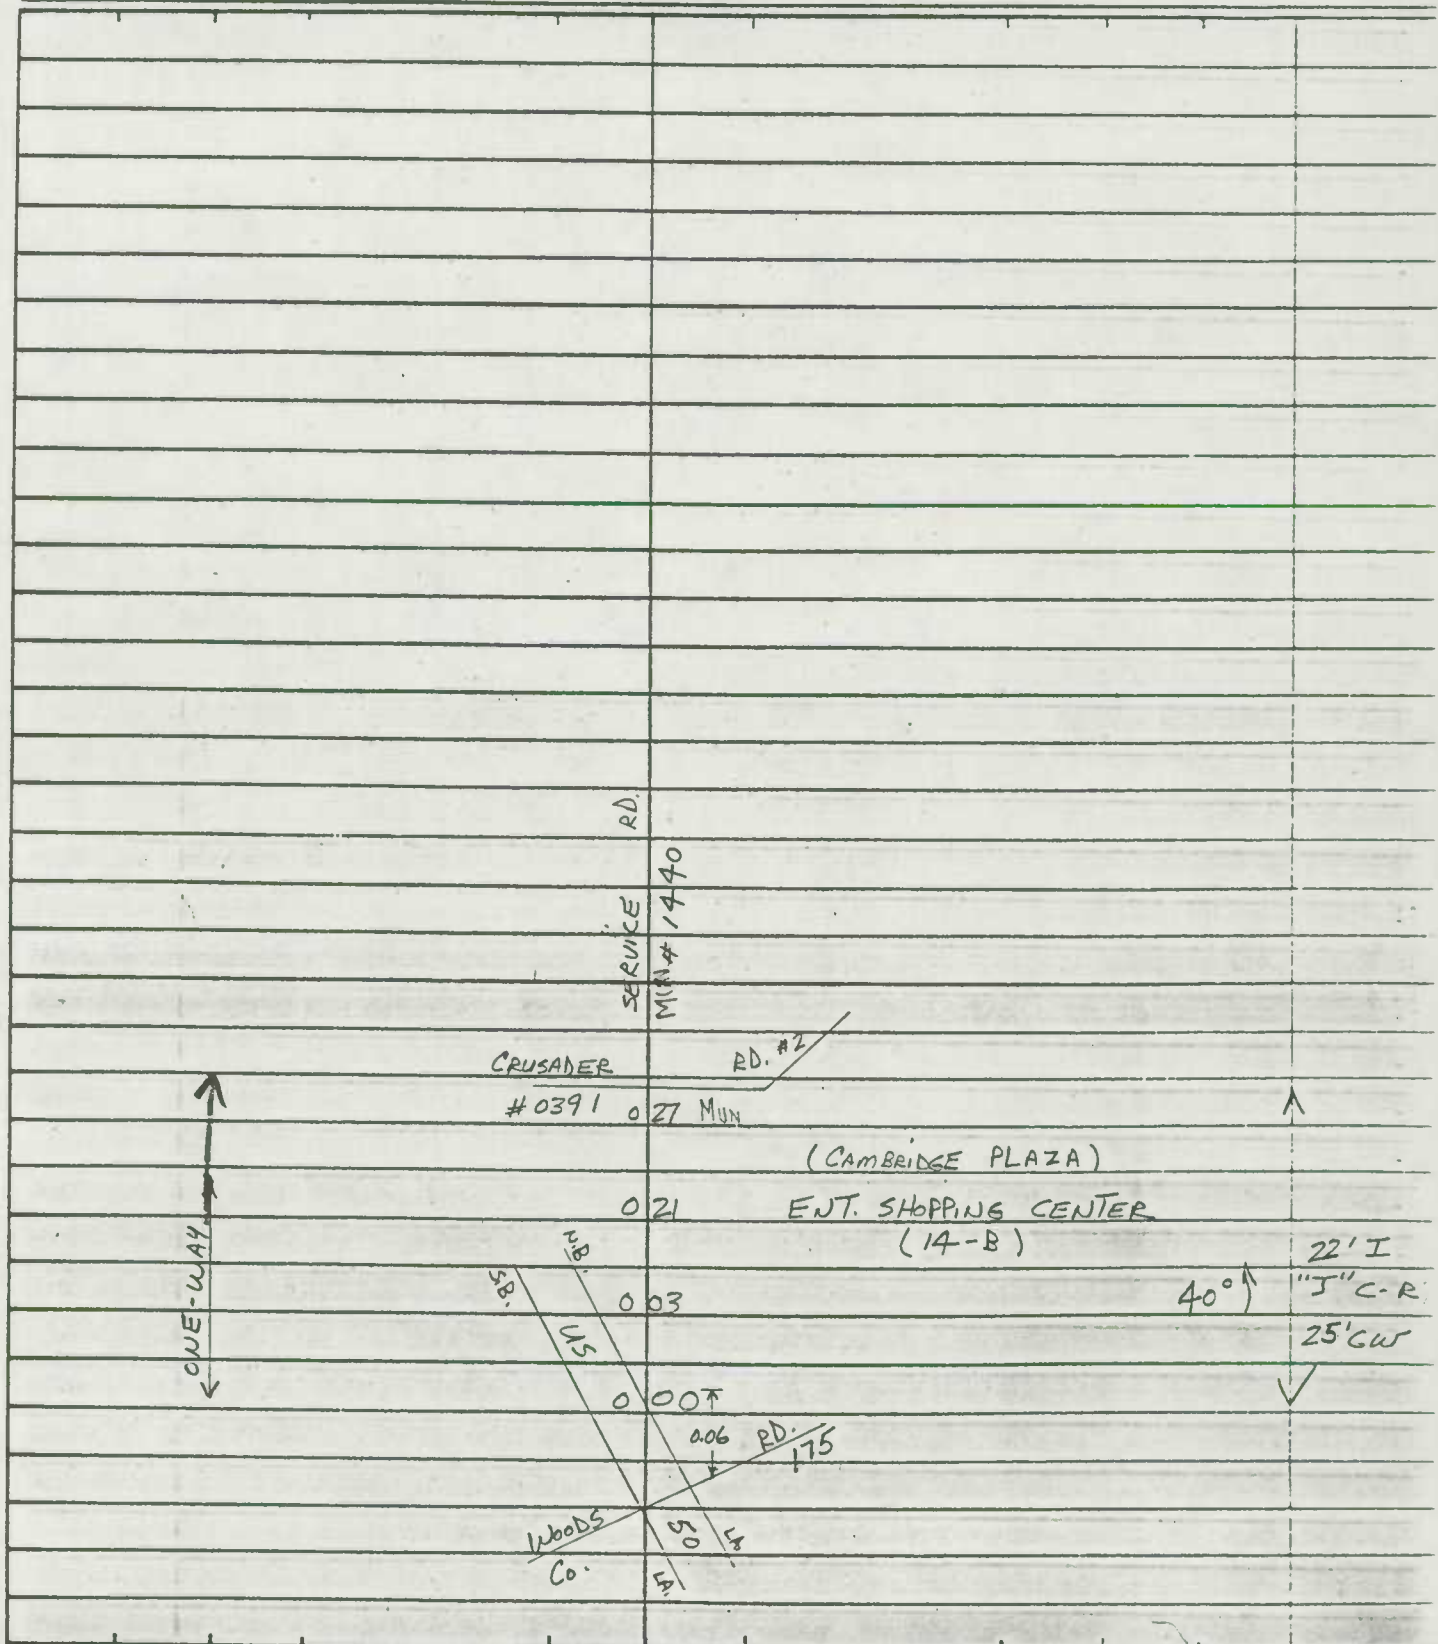 SERVICE RD.
MUN # 1440
CRUSADER RD. #2
#0391 0 27 MUN
(CAMBRIDGE PLAZA)
0 21 ENT. SHOPPING CENTER
(14-B)
ONE-WAY
N.B.
S.B.
22' I
40° "J" C-R
0 03
25' GW
US 50
0 00
0.06
WOODS RD.
Co. 175
LA.
LA.